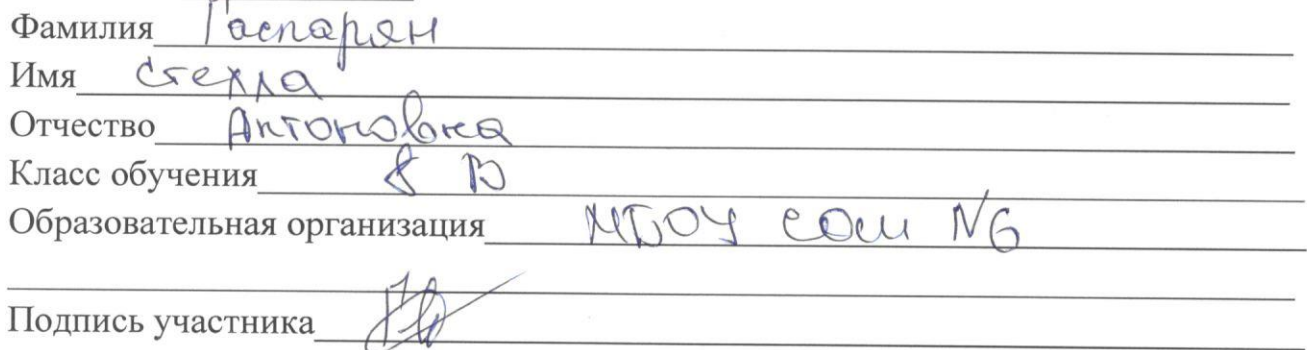 Фамилия Гаспарян
Имя Стелла
Отчество Антоновна
Класс обучения 8 В
Образовательная организация МБОУ СОШ №6
Подпись участника